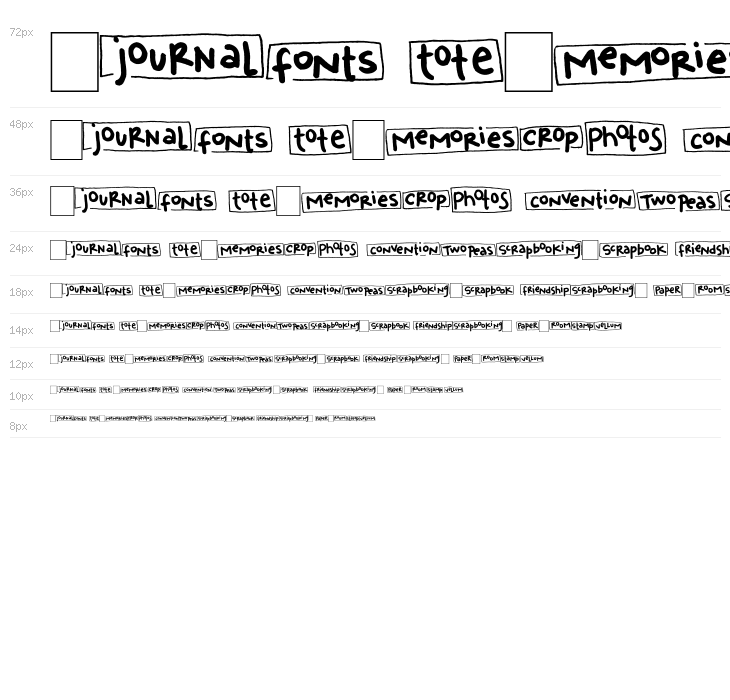 72px JOURNAL fonts tote MeMORie
48px JOURNAL fonts tote MeMORies CROp PHotos CON
36px JOURNAL fonts tote MeMORies CROp PHotos CONVeNtioN TWO PeAs S
24px JOURNAL fonts tote MeMORies CROp PHotos CONVeNtioN TWO PeAs SCRApbOOKiNg SCRApbOOK fRieNdsh
18px JOURNAL fonts tote MeMORies CROp PHotos CONVeNtioN TWO PeAs SCRApbOOKiNg SCRApbOOK fRieNdship SCRApbOOKiNg PApeR ROOM S
14px JOURNAL fonts tote MeMORies CROp PHotos CONVeNtioN TWO PeAs SCRApbOOKiNg SCRApbOOK fRieNdship SCRApbOOKiNg PApeR ROOM stAMp VeLLUM
12px JOURNAL fonts tote MeMORies CROp PHotos CONVeNtioN TWO PeAs SCRApbOOKiNg SCRApbOOK fRieNdship SCRApbOOKiNg PApeR ROOM stAMp VeLLUM
10px JOURNAL fonts tote MeMORies CROp PHotos CONVeNtioN TWO PeAs SCRApbOOKiNg SCRApbOOK fRieNdship SCRApbOOKiNg PApeR ROOM stAMp VeLLUM
8px